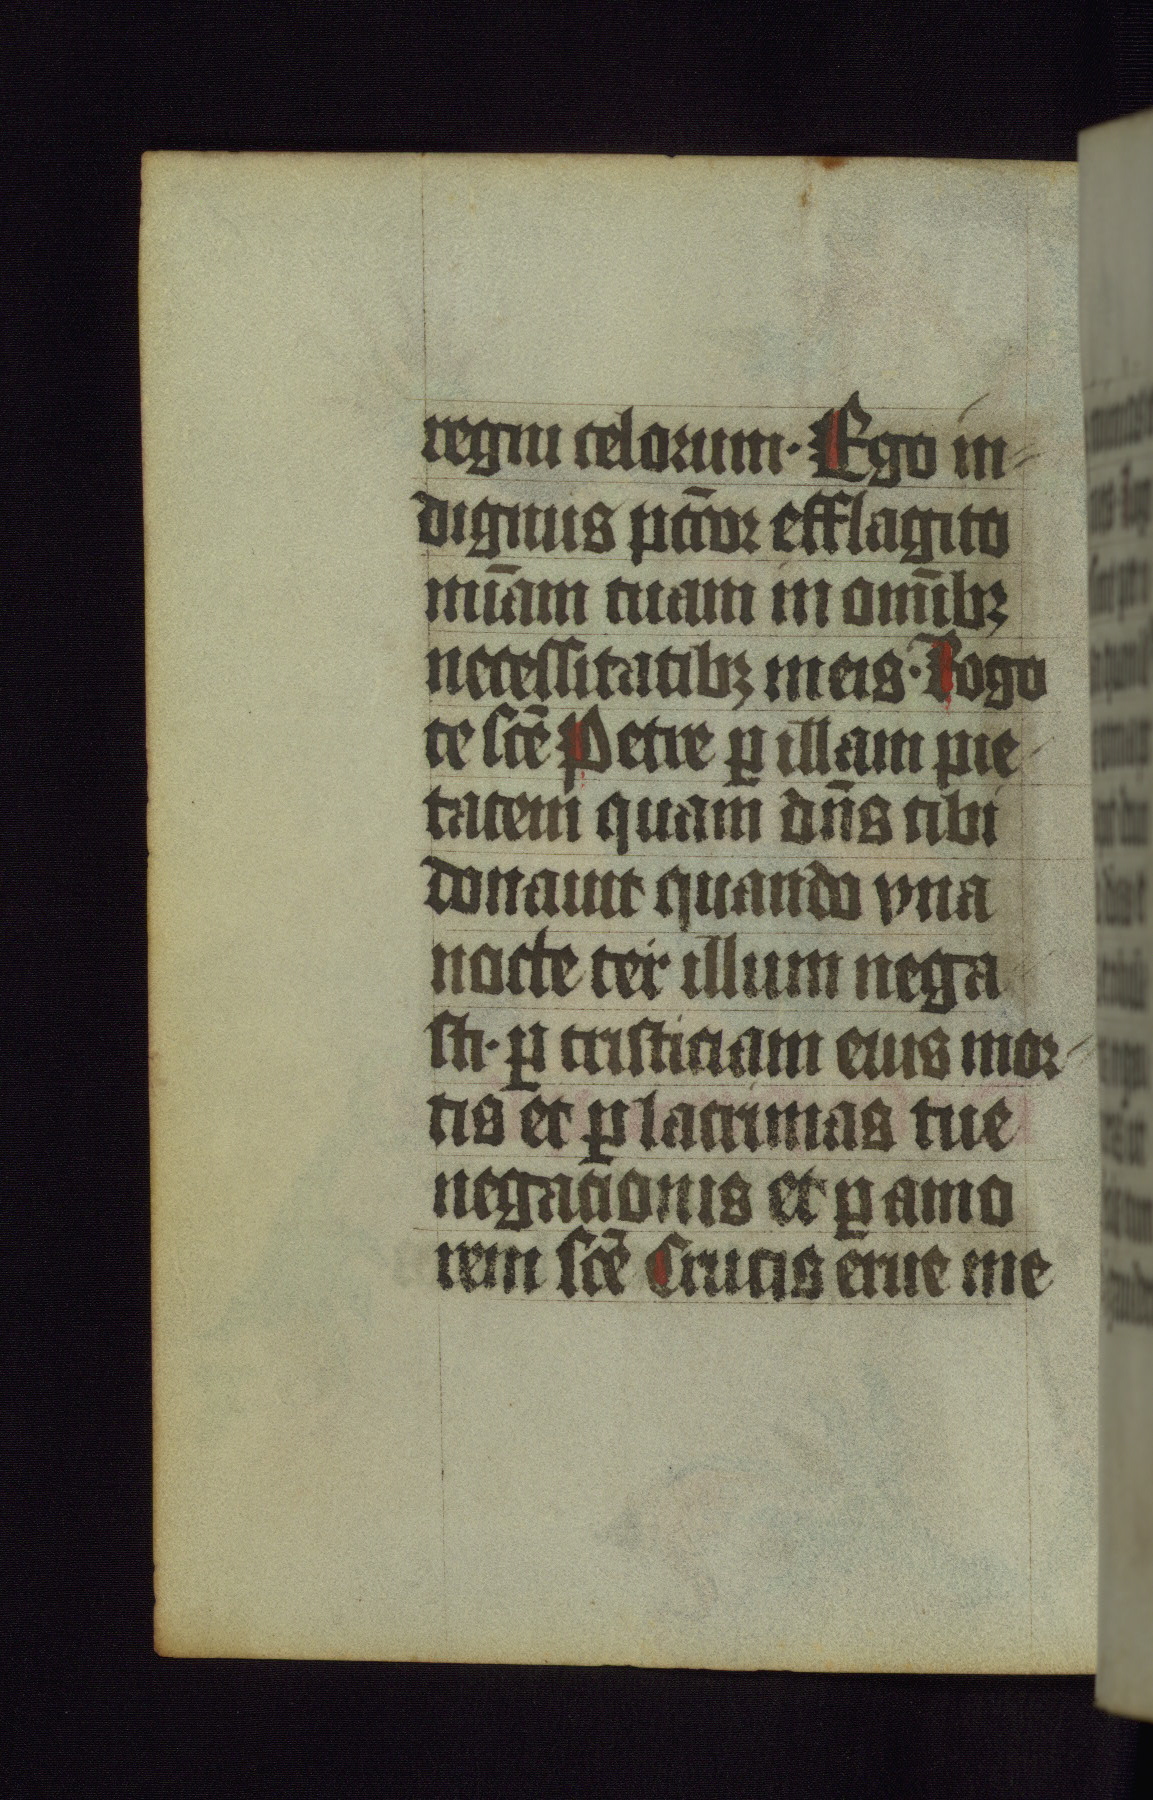 regni celorum· Ego in-
dignus pc̄cor efflagito
mīam tuam in omībꝫ
necessitatibꝫ meis· Rogo
te sc̄e Petre ꝑ illam pie
tatem quam dn̄s tibi
donauit quando vna
nocte ter illum nega
sti· ꝑ tristiciam eius mor-
tis et ꝑ lacrimas tue
negacionis et ꝑ amo
rem sc̄e Crucis erue me